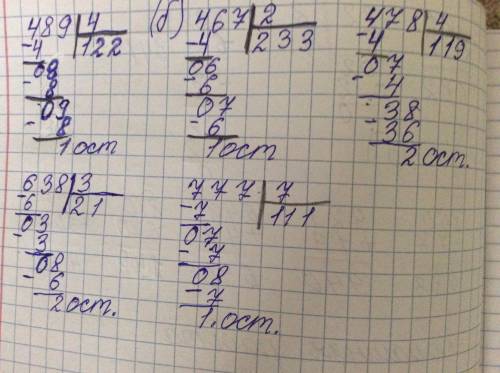 489 | 4
-4 | 122
08
- 8
09
- 8
1 ост
(б) 467 | 2
-4 | 233
06
- 6
07
- 6
1 ост
478 | 4
-4 | 119
07
- 4
38
- 36
2 ост.
638 | 3
-6 | 21
03
- 3
08
- 6
2 ост.
777 | 7
-7 | 111
07
- 7
08
- 7
1. ост.